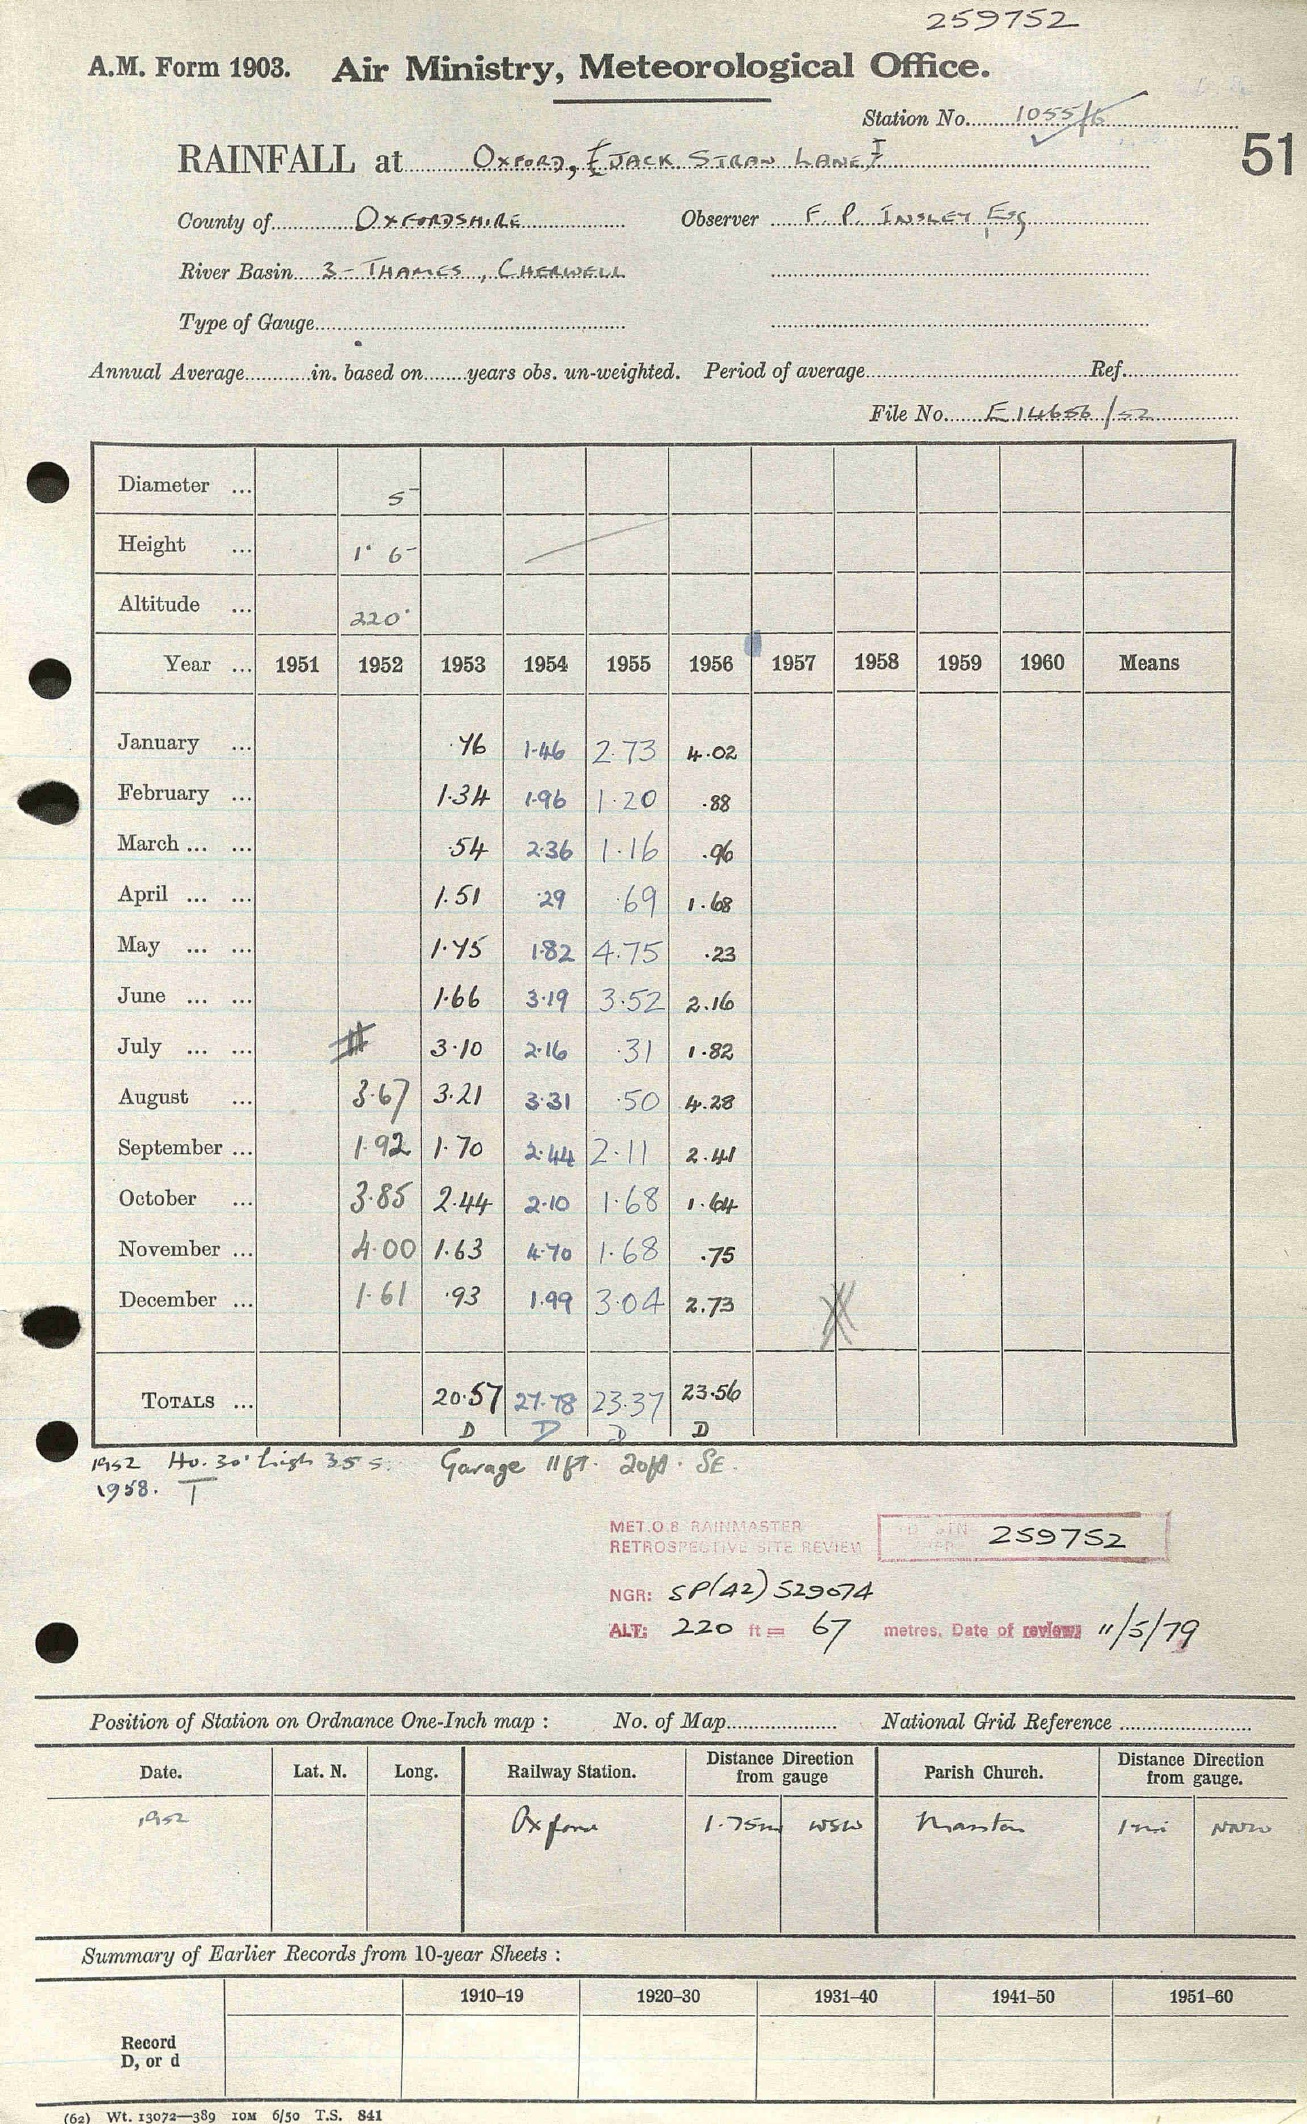 259752
A.M. Form 1903. Air Ministry, Meteorological Office.
Station No. 1055/6
51
RAINFALL at Oxford, [Jack Straw Lane]
County of Oxfordshire Observer F. P. Insley Esq
River Basin 3 - Thames, Cherwell
Type of Gauge
Annual Average in. based on years obs. un-weighted. Period of average Ref.
File No. E14656/52
Diameter ... 5
Height ... 1' 6
Altitude ... 220'
Year ... 1951 1952 1953 1954 1955 1956 1957 1958 1959 1960 Means
January ... .76 1.46 2.73 4.02
February ... 1.34 1.96 1.20 .88
March ... ... .54 2.36 1.16 .96
April ... ... 1.51 .29 .69 1.68
May ... ... 1.75 1.82 4.75 .23
June ... ... 1.66 3.19 3.52 2.16
July ... ... 3.10 2.16 .31 1.82
August ... 3.67 3.21 3.31 .50 4.28
September ... 1.92 1.70 2.44 2.11 2.41
October ... 3.85 2.44 2.10 1.68 1.64
November ... 4.00 1.63 4.70 1.68 .75
December ... 1.61 .93 1.99 3.04 2.73
Totals ... 20.57 27.78 23.37 23.56
D D D D
1952 Ho. 30' high 35 S. Garage 11ft. 20ft. SE.
1958. T
MET.O.8 RAINMASTER
RETROSPECTIVE SITE REVIEW 259752
NGR: SP(42) 529074
ALT: 220 ft = 67 metres. Date of review: 11/5/79
Position of Station on Ordnance One-Inch map : No. of Map National Grid Reference
Date. Lat. N. Long. Railway Station. Distance Direction from gauge Parish Church. Distance Direction from gauge.
1952 Oxford 1.75m WSW Marston 1 mi NNW
Summary of Earlier Records from 10-year Sheets :
1910–19 1920–30 1931–40 1941–50 1951–60
Record
D, or d
(62) Wt. 13072—389 10M 6/50 T.S. 841